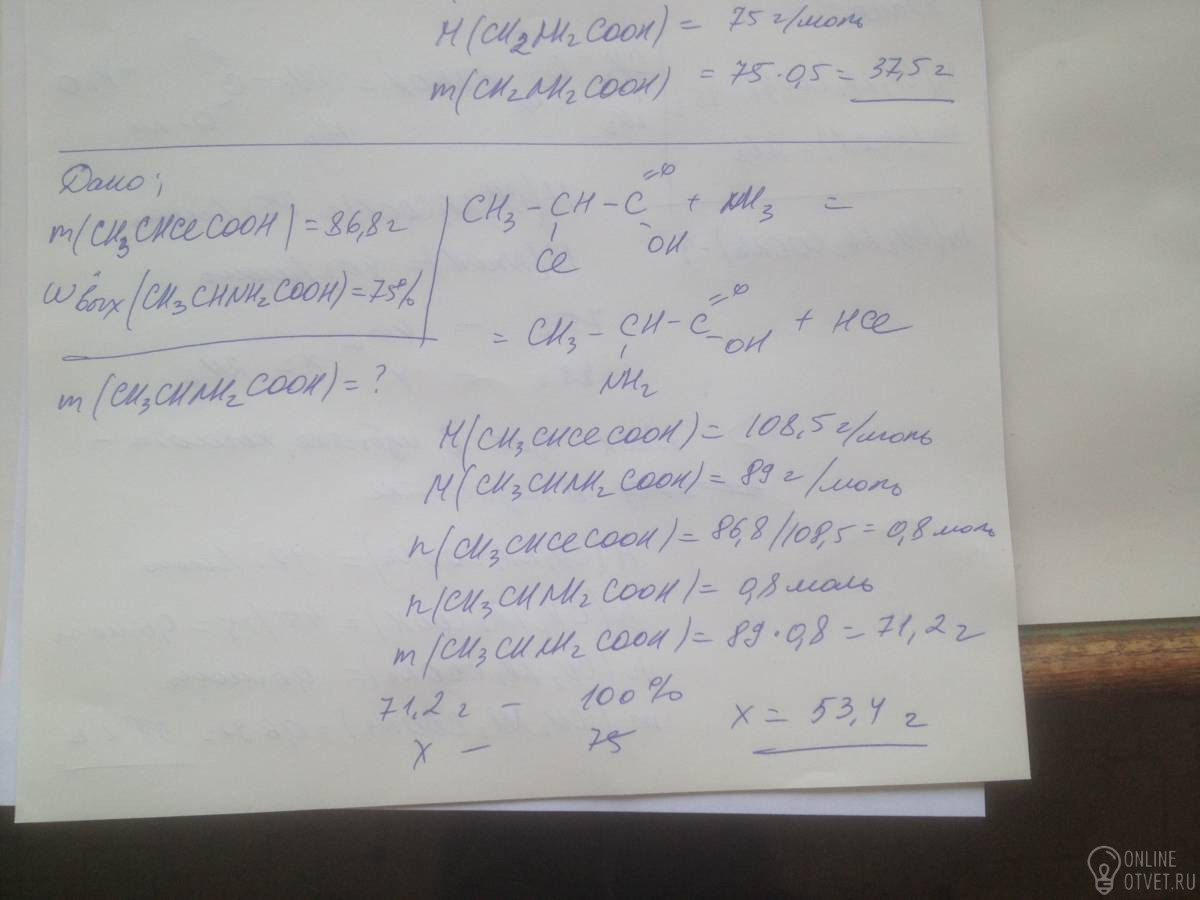 M(CH2NH2COOH) = 75 г/моль
m(CH2NH2COOH) = 75·0,5 = 37,5 г
Дано:
m(CH3CHClCOOH) = 86,8 г
wвых(CH3CHNH2COOH) = 75%
m(CH3CHNH2COOH) = ?
CH3 – CH – C =O + NH3 =
Cl OH
= CH3 – CH – C =O + HCl
NH2 OH
M(CH3CHClCOOH) = 108,5 г/моль
M(CH3CHNH2COOH) = 89 г/моль
n(CH3CHClCOOH) = 86,8/108,5 = 0,8 моль
n(CH3CHNH2COOH) = 0,8 моль
m(CH3CHNH2COOH) = 89·0,8 = 71,2 г
71,2 г – 100%
x – 75
x = 53,4 г
ONLINE
OTVET.RU